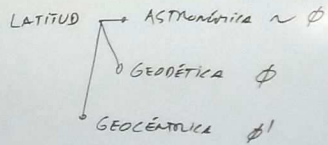 LATITUD → ASTRONÓMICA ~ ϕ
GEODÉTICA ϕ
GEOCÉNTRICA ϕ'